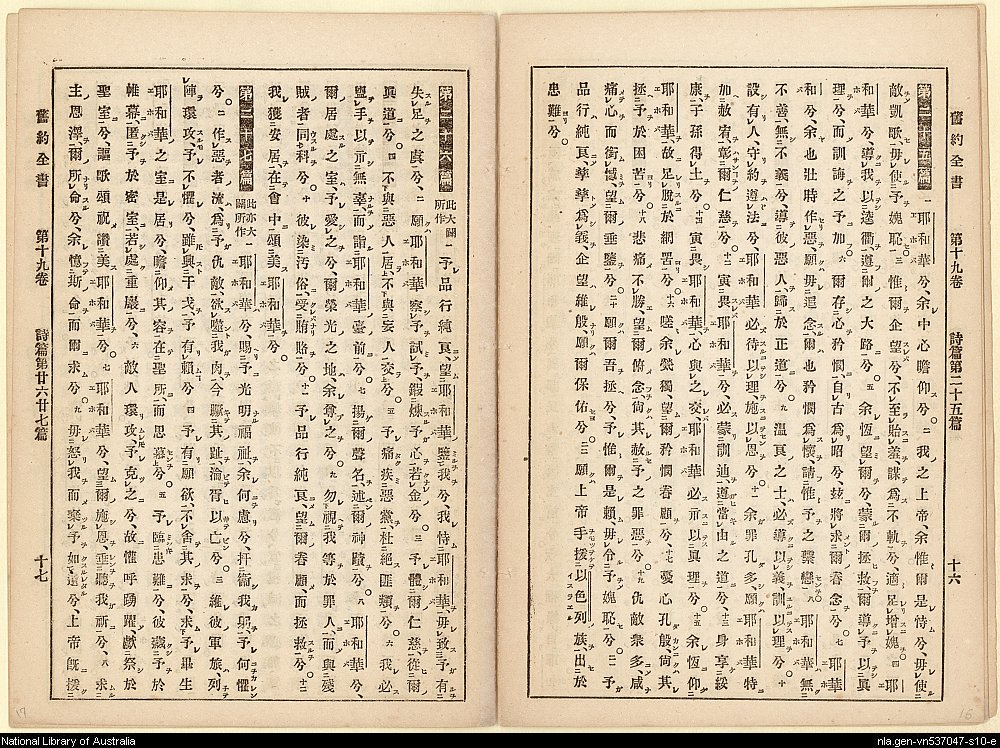 舊約全書　第十九卷　詩篇第二十五篇　十六
第二十五篇　一耶和華兮、余中心瞻仰兮。二我之上帝、余惟爾是恃兮、毋使
敵凱歌、毋使予媿恥。三惟爾企望兮、不至貽羞、謀爲不軌兮、適足增媿。四耶
和華兮、導我以逵衢、遵爾之大路兮。五余恆望爾兮、蒙爾拯救、爾導予以眞
理兮、而訓誨之予加。六爾存心矜憫、自古爲昭兮、玆將求爾眷念兮。七耶
和華兮、余也壯時作惡、願毋追念、爾也矜憫爲懷、請惟予之繫戀。八耶和華無
不善、無不義兮、導彼惡人、歸於正道兮。九溫良之士、必導以義、訓以理兮。十
設有人、守約遵法兮、耶和華必待以理、施以恩兮。十一余罪孔多、願耶和華特
加赦宥、彰爾仁慈兮。十二寅畏耶和華兮、必蒙訓迪、道當由之道兮。十三身享綏
康、子孫得土兮。十四寅畏耶和華、心與之交、耶和華必示以眞理兮。十五余恆仰
耶和華、故足脫於網罟兮。十六嗟余煢獨、望爾矜憫眷顧兮。十七憂心孔殷、尙其
拯予於困苦兮。十八悲痛不勝、望爾俯念、尙其赦予之罪惡兮。十九仇敵衆多、咸
痛心而銜憾、望爾垂鑒兮。二十願爾吾拯兮、予惟爾是賴、毋令予媿恥兮。二一予
品行純良、孳孳爲義、企望維殷、願爾保佑兮。二二願上帝手援以色列族、出於
患難兮。
第二十六篇　此大闢所作　一予品行純良、望耶和華鑒我兮、我恃耶和華、毋致予有
失足之虞兮、二願耶和華察予、試予、鍛煉予心、若金兮。三予體爾仁慈、從爾
眞道兮。四不與惡人居、不與妄人交兮。五予痛疾惡黨、杜絕匪類兮。六我必
盥手、以示無辜、而詣耶和華臺前兮。七揚爾聲名、述爾神蹟兮。八耶和華兮、
爾居處之室、予愛之兮、爾榮光之地、余尊之兮。九勿視我等於罪人、而與殘
賊者同科兮。十彼染汚俗、受賄賂兮。十一予品行純良、望爾眷顧、而拯救兮。十二
我獲安居、在會中頌美耶和華兮。
第二十七篇　此亦大闢所作　一耶和華兮、賜予光明福祉、余何慮兮、扞衞我躬、予何懼
兮。二作惡者流、爲予仇敵、欲噬我肉、今蹶其趾、淪胥以亡兮。三維彼軍旅、列
陣環攻、予不懼兮、雖興干戈、予有賴兮。四予有願欲、不舍其求兮、求予畢生
耶和華之室是居兮、瞻仰其容、在聖所而思慕兮。五予臨患難兮、彼藏予於
帷幕、匿予於密室、若處重巖兮、六敵人環攻、予克之兮、故懽呼踴躍、獻祭於
聖室兮、謳歌頌祝、讚美耶和華兮。七耶和華兮、望爾施恩、垂聽我祈兮、八求
主恩澤、爾所命兮、余憶斯命、而爾求兮。九毋怒我而棄予如遺兮、上帝旣援
舊約全書　第十九卷　詩篇第廿六廿七篇　十七
17
16
National Library of Australia
nla.gen-vn537047-s10-e